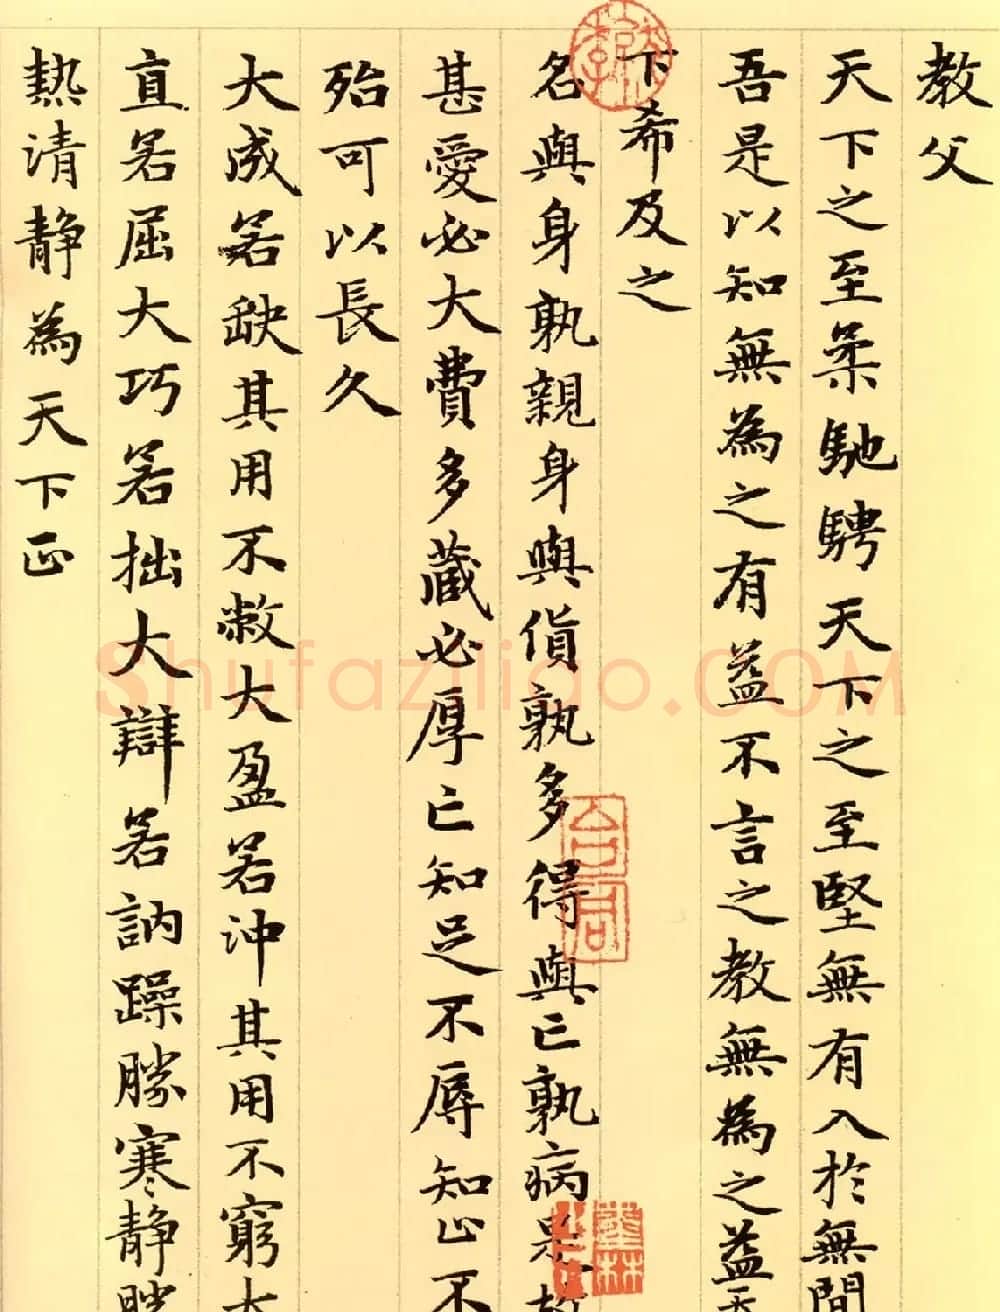 教父
天下之至柔馳騁天下之至堅無有入於無間
吾是以知無為之有益不言之教無為之益天
下希及之
名與身孰親身與貨孰多得與亡孰病是故
甚愛必大費多藏必厚亡知足不辱知止不
殆可以長久
大成若缺其用不敝大盈若沖其用不窮大
直若屈大巧若拙大辯若訥躁勝寒靜勝
熱清靜為天下正
Shufaziliao.COM